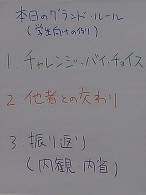 本日のグランド・ルール
(学生向けの例)
1 チャレンジ・バイ・チョイス
2 他者との交わり
3 振り返り
(内観 内省)